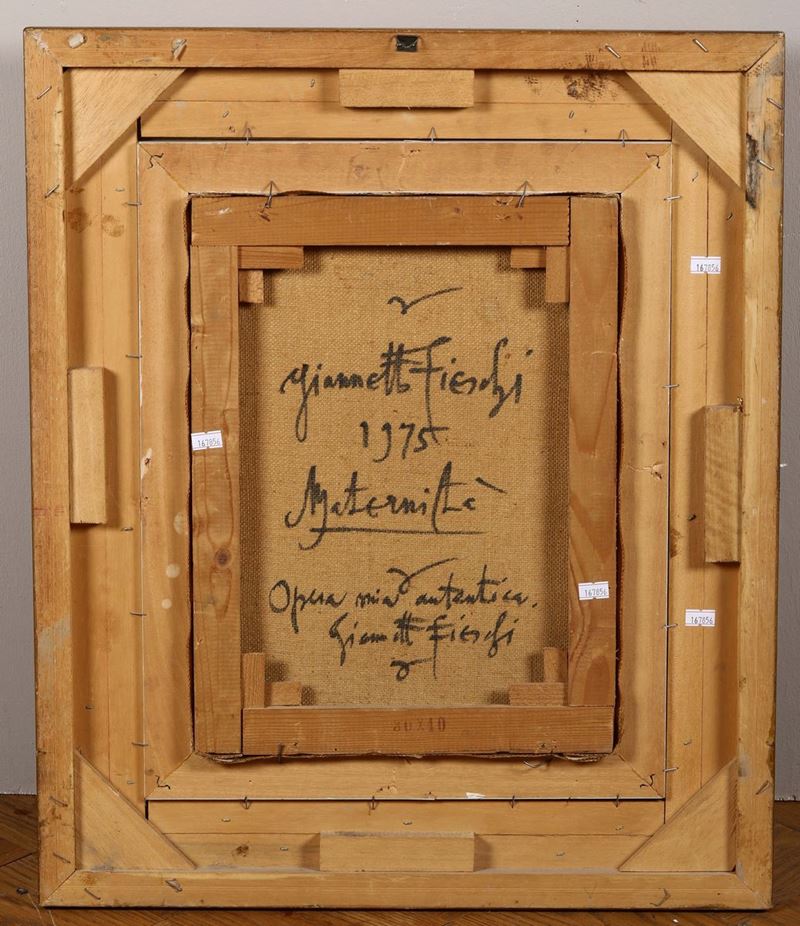 Giannetto Fieschi
1975
Maternità
Opera mia autentica.
Giannetto Fieschi
30X40
167856
167856
167856
167856